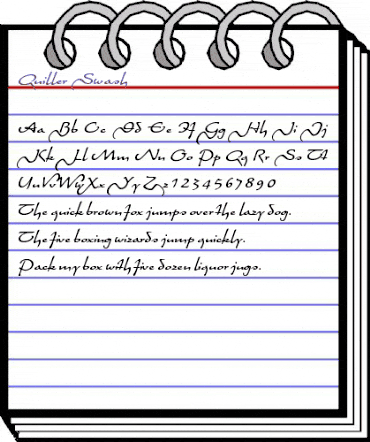 Quiller Swash
Aa Bb Cc Dd Ee Ff Gg Hh Ii Jj
Kk Ll Mm Nn Oo Pp Qq Rr Ss Tt
Uu Vv Ww Xx Yy Zz 1 2 3 4 5 6 7 8 9 0
The quick brown fox jumps over the lazy dog.
The five boxing wizards jump quickly.
Pack my box with five dozen liquor jugs.